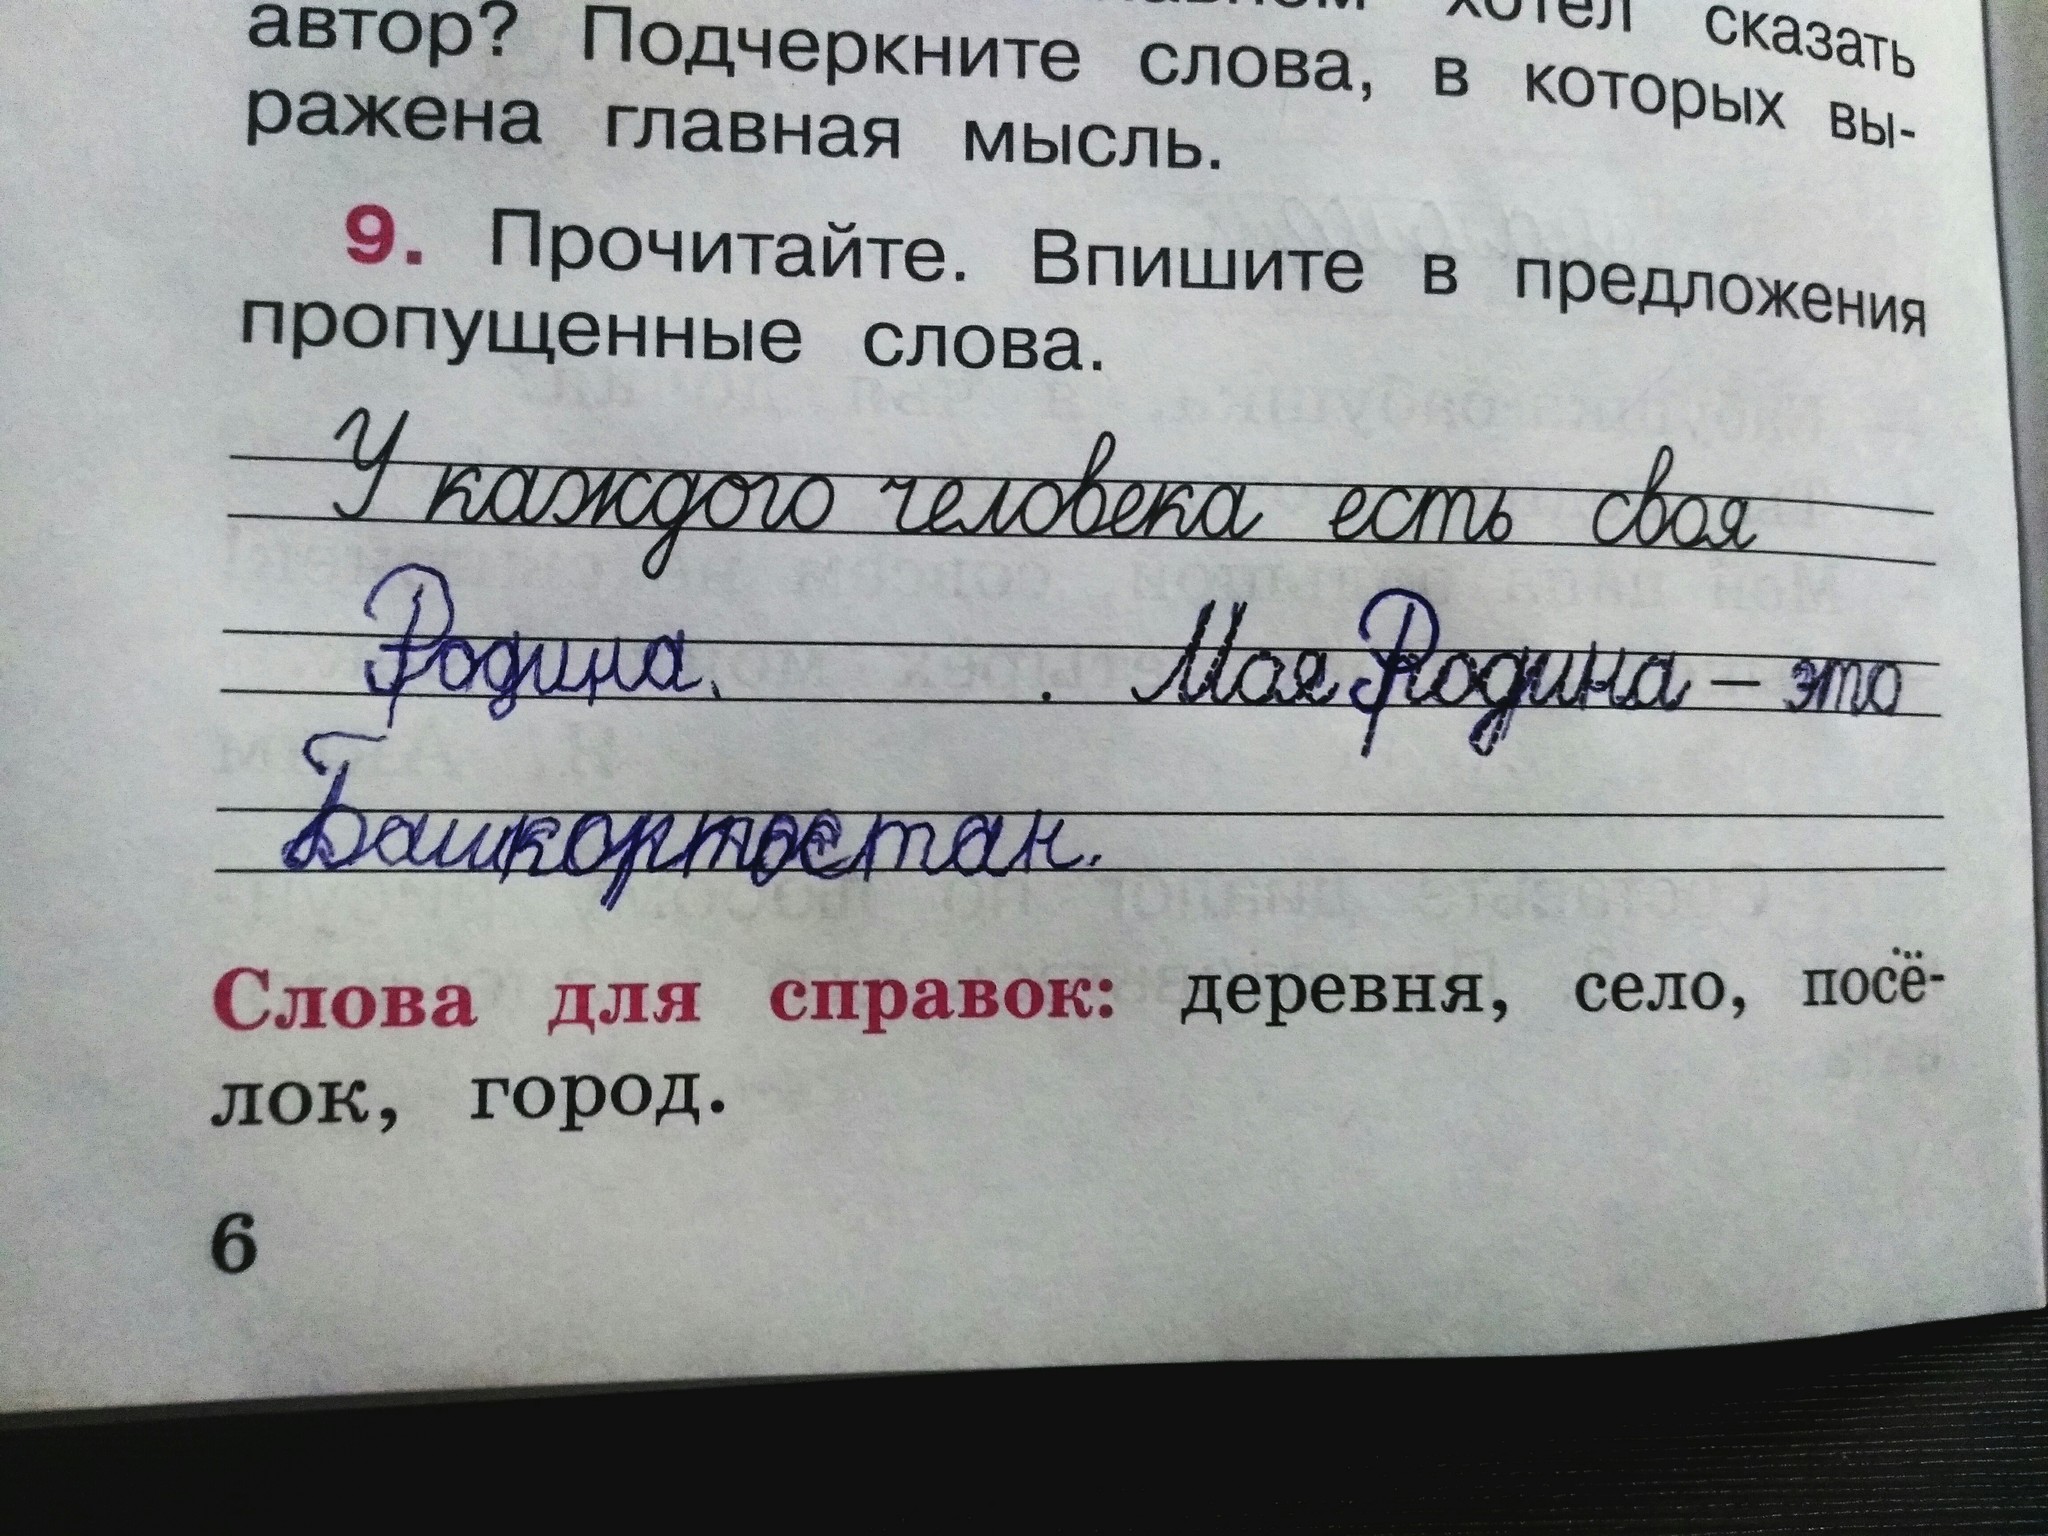 хотел сказать
автор? Подчеркните слова, в которых вы-
ражена главная мысль.
9. Прочитайте. Впишите в предложения
пропущенные слова.
У каждого человека есть своя
Родина. . Моя Родина – это
Башкортостан.
Слова для справок: деревня, село, посё-
лок, город.
6